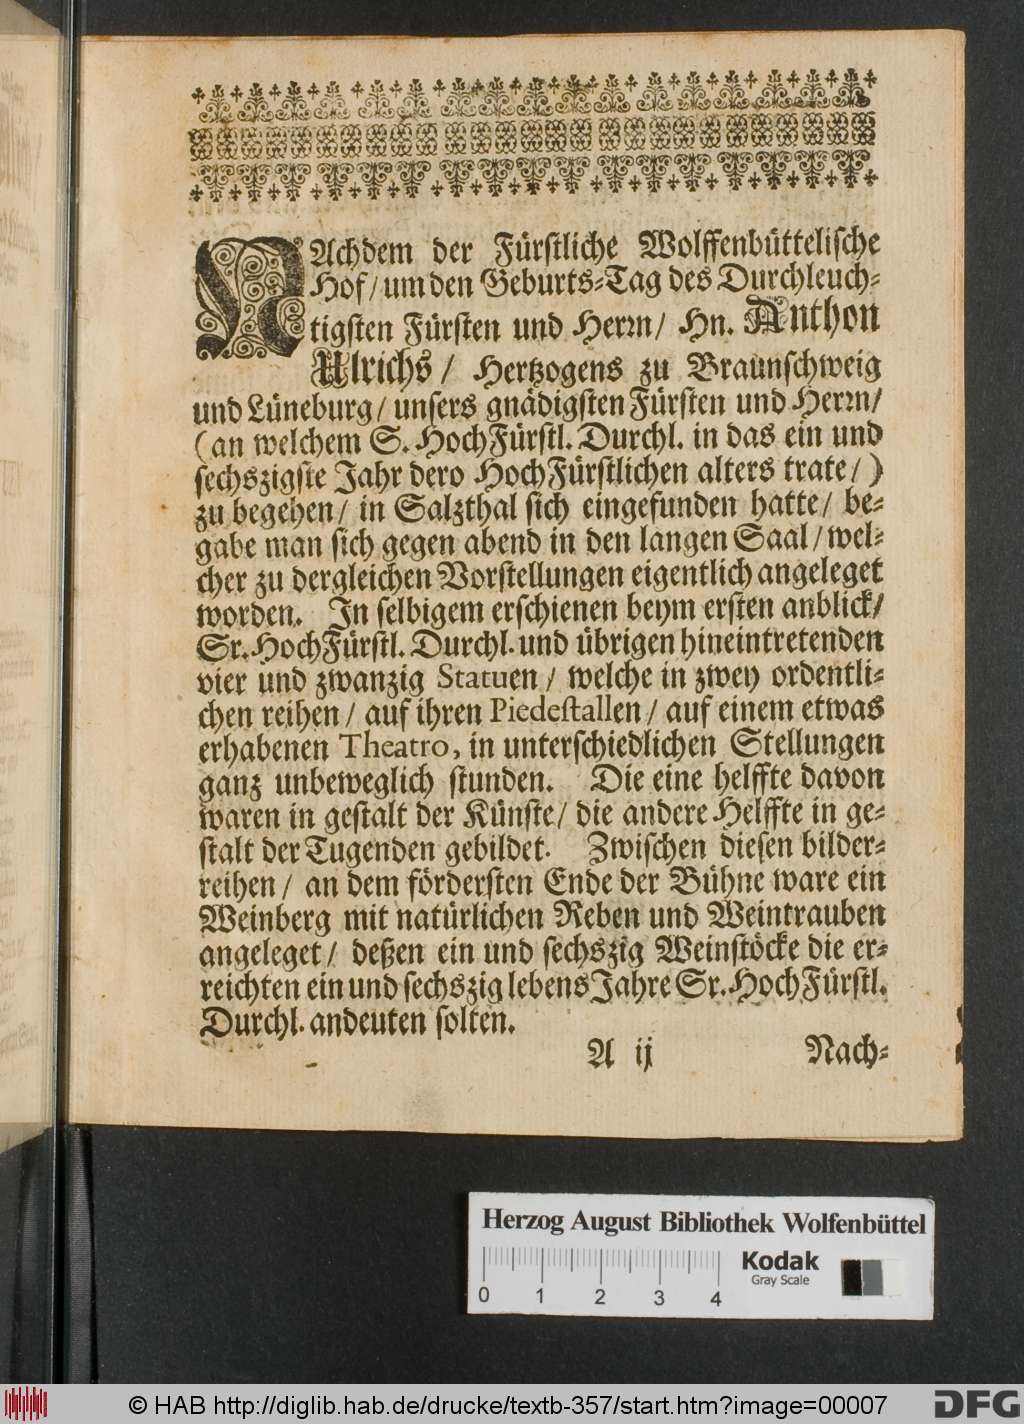 NAchdem der Fürstliche Wolffenbüttelische
Hof/ um den Geburts-Tag des Durchleuch-
tigsten Fürsten und Herrn/ Hn. Anthon
Ulrichs/ Hertzogens zu Braunschweig
und Lüneburg/ unsers gnädigsten Fürsten und Herrn/
(an welchem S. HochFürstl. Durchl. in das ein und
sechszigste Jahr dero HochFürstlichen alters trate/)
zu begehen/ in Salzthal sich eingefunden hatte/ be-
gabe man sich gegen abend in den langen Saal/ wel-
cher zu dergleichen Vorstellungen eigentlich angeleget
worden. In selbigem erschienen beym ersten anblick/
Sr. HochFürstl. Durchl. und übrigen hineintretenden
vier und zwanzig Statuen/ welche in zwey ordentli-
chen reihen/ auf ihren Piedestallen/ auf einem etwas
erhabenen Theatro, in unterschiedlichen Stellungen
ganz unbeweglich stunden. Die eine helffte davon
waren in gestalt der Künste/ die andere Helffte in ge-
stalt der Tugenden gebildet. Zwischen diesen bilder-
reihen/ an dem fördersten Ende der Bühne ware ein
Weinberg mit natürlichen Reben und Weintrauben
angeleget/ deßen ein und sechszig Weinstöcke die er-
reichten ein und sechszig lebens Jahre Sr. HochFürstl.
Durchl. andeuten solten.
A ij Nach-
Herzog August Bibliothek Wolfenbüttel
Kodak
Gray Scale
0 1 2 3 4
© HAB http://diglib.hab.de/drucke/textb-357/start.htm?image=00007
DFG